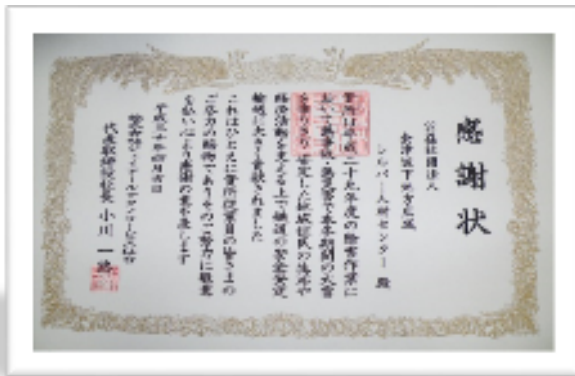 感謝状
公益社団法人
会津坂下地方広域
シルバー人材センター 殿
貴所は平成二十九年度の除雪作業に
おいて無事故・無災害で本冬期間の大雪
を乗りきり安定した地域住民の生活や
経済活動を支える上で鉄道の安全安定
輸送に大きく貢献されました
これはひとえに貴所従業員の皆さまの
ご尽力の賜物でありそのご努力に敬意
を払い心より感謝の意を表します
平成三十年四月
代表取締役社長 小川一